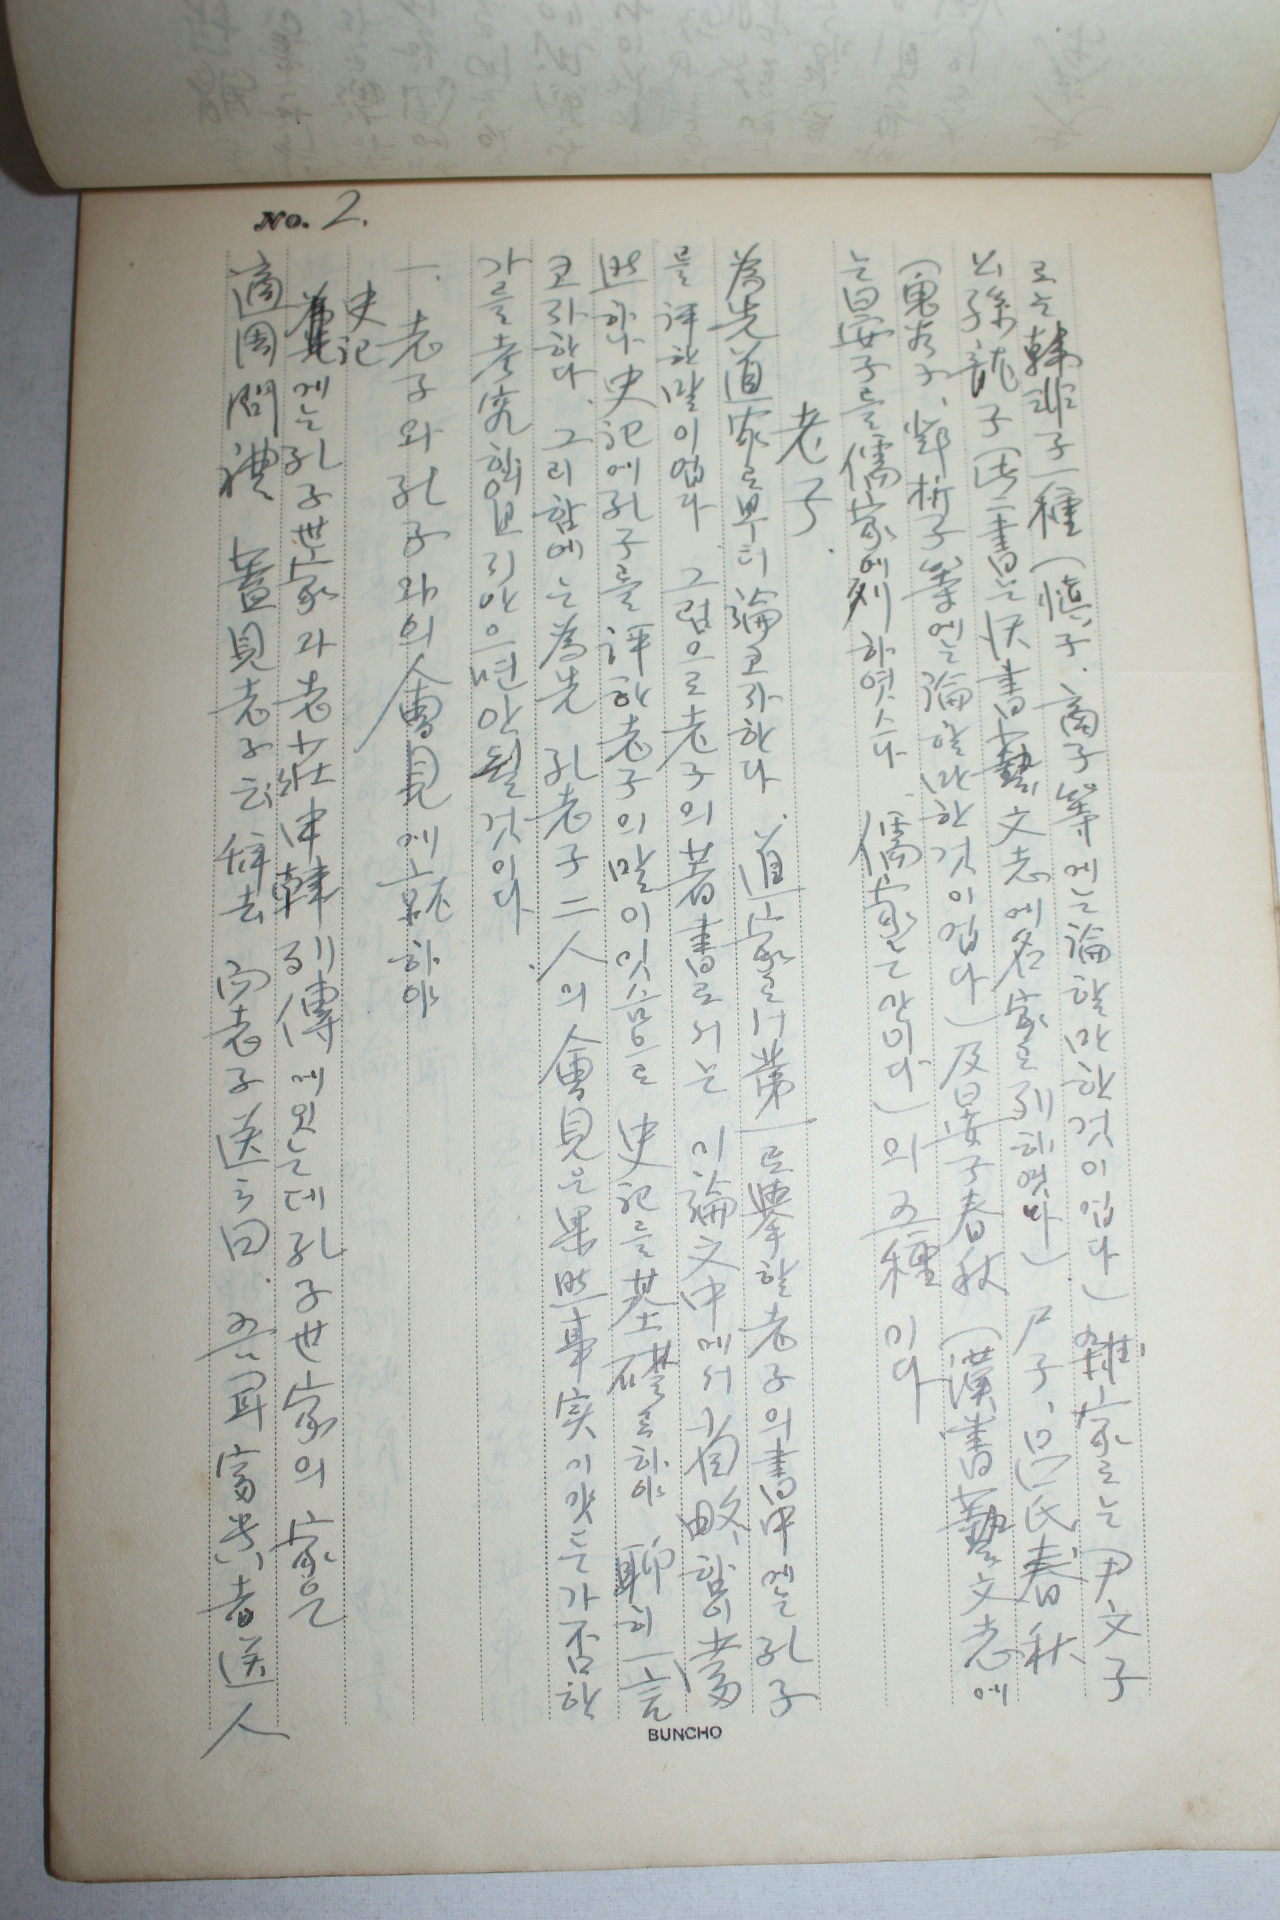 No. 2.
로는 韓非子一種 (愼子. 商子等에는 論할만한것이업다) 雜家로는 尹文子
公孫龍子 (此二書는 漢書藝文志에 名家로 列하엿다) 尸子, 呂氏春秋
(鬼谷子, 鄧析子等에는 論할만한것이업다) 及晏子春秋 (漢書藝文志에
는 晏子를 儒家에 列하엿스나 儒家는 안이다) 의 五種이다
老子.
爲先 道家로부터 論코자한다. 道家로서 第一로 擧할 老子의 書中에는 孔子
를 評한말이업다. 그럼으로 老子의 著書로서는 이 論文中에서 省略함이 當
然하나 史記에 孔子를 評한 老子의 말이잇슴으로 史記를 基礎로하야 聊히 一言
코자한다. 그리함에는 爲先 孔老子二人의 會見은 果然 事実이갓든가 否한
가를 考究할 안으면 안될것이다.
一. 老子와 孔子와의 會見에 就하야
史記
에는 孔子世家라 老莊申韓列傳에 잇는데 孔子世家의 家은
適周問禮 蓋見老子云 辞去 而老子送之曰. 吾聞富貴者送人
BUNCHO